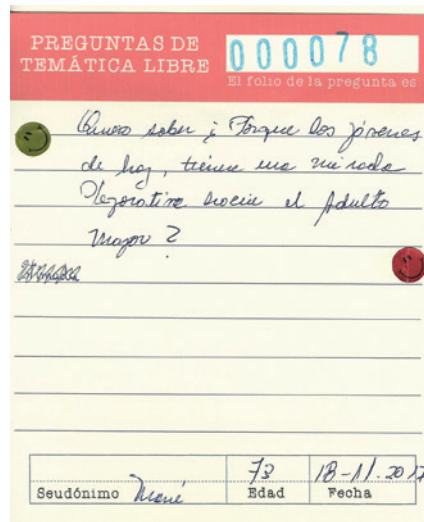 PREGUNTAS DE
TEMÁTICA LIBRE
000078
El folio de la pregunta es
Quiero saber ¿ Porque los jóvenes
de hoy, tienen una mirada
Peyorativa hacia el Adulto
Mayor ?
73
18-11-2017
Seudónimo
Edad
Fecha